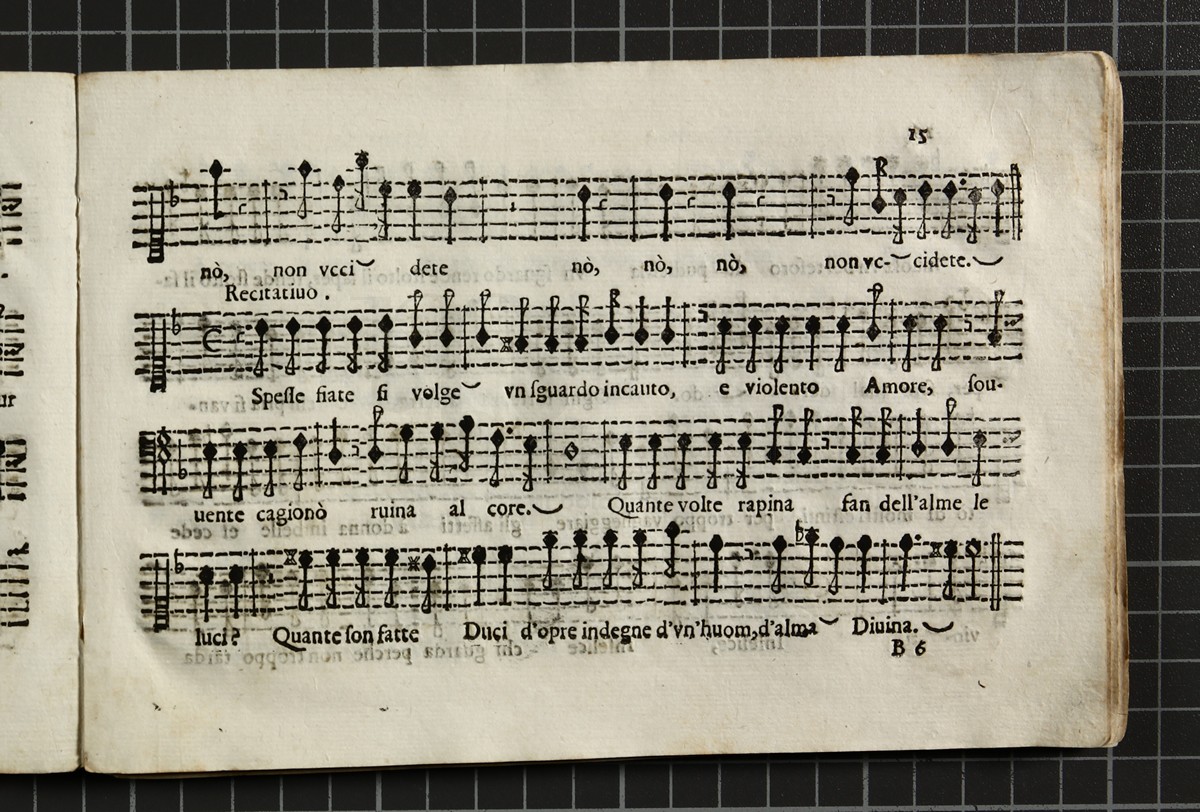 15
nò, non vcci dete nò, nò, nò, non vc- cidete.
Recitatiuo.
Spesse fiate si volge vn sguardo incauto, e violento Amore, sou-
uente cagionò ruina al core. Quante volte rapina fan dell'alme le
luci? Quante son fatte Duci d'opre indegne d'vn'huom, d'alma Diuina.
B 6